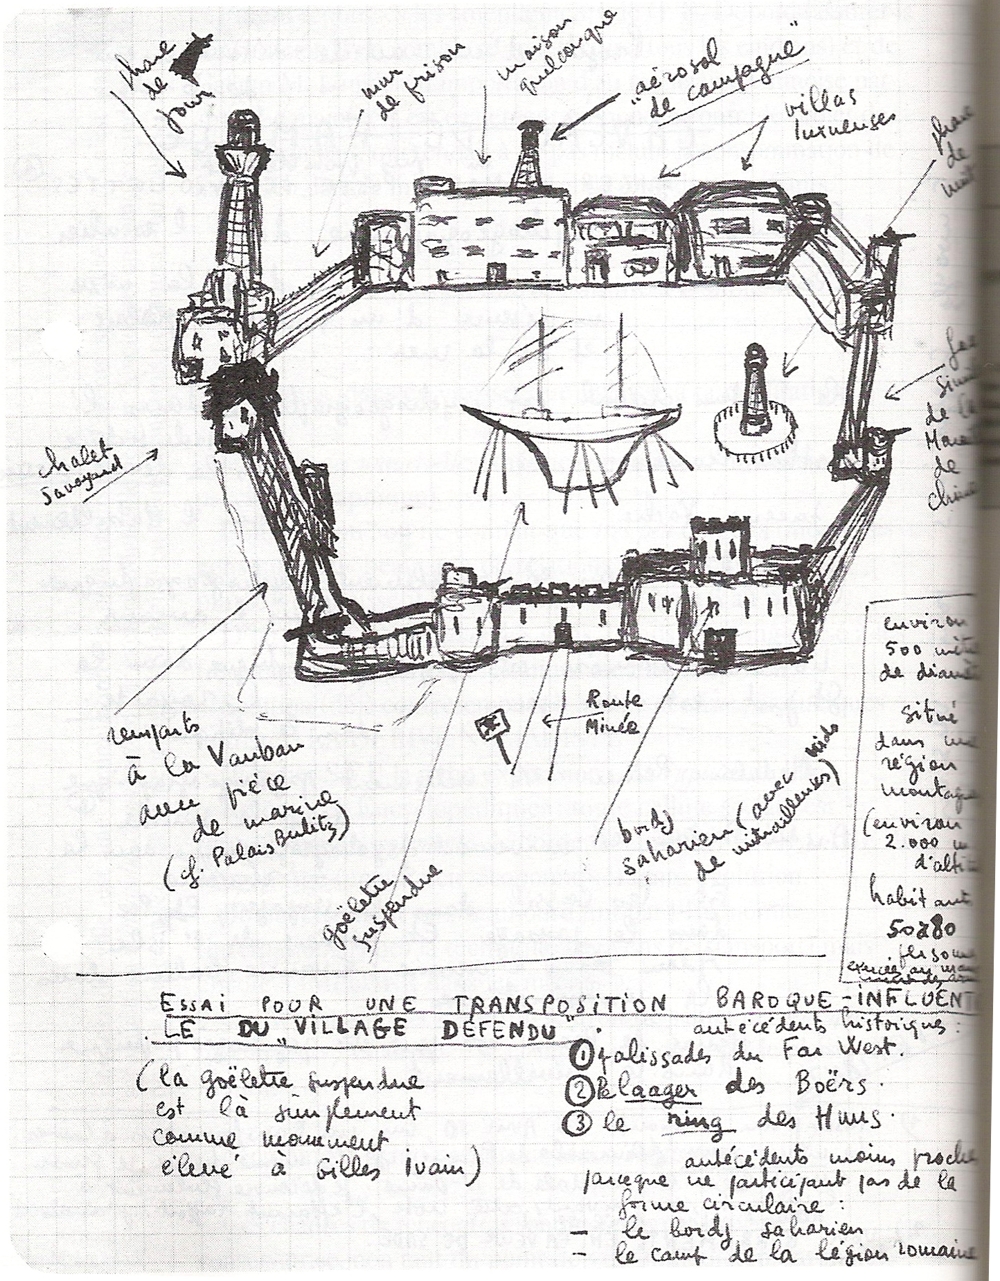 phare
de
jour
mur
de prison
maison
quelconque
"aérosol
de campagne"
villas
luxueuses
phare
de
nuit
de la
de
chine
chalet
savoyard
environ
500
de
situé
dans
région
(environ
2.000
habitants
50 à 80
remparts
à la Vauban
avec pièce
de marine
(cf. Palais
goëlette
suspendue
Route
Minée
bordj
saharien (avec nids
de mitrailleuses)
ESSAI POUR UNE TRANSPOSITION BAROQUE-INFLUENT
LE DU "VILLAGE DÉFENDU".
(la goëlette suspendue
est là simplement
comme monument
élevé à Gilles Ivain)
antécédents historiques:
① palissades du Far West.
② le laager des Boërs.
③ le ring des Huns.
antécédents moins proche
parceque ne participant pas de la
forme circulaire:
– le bordj saharien
– le camp de la légion romaine